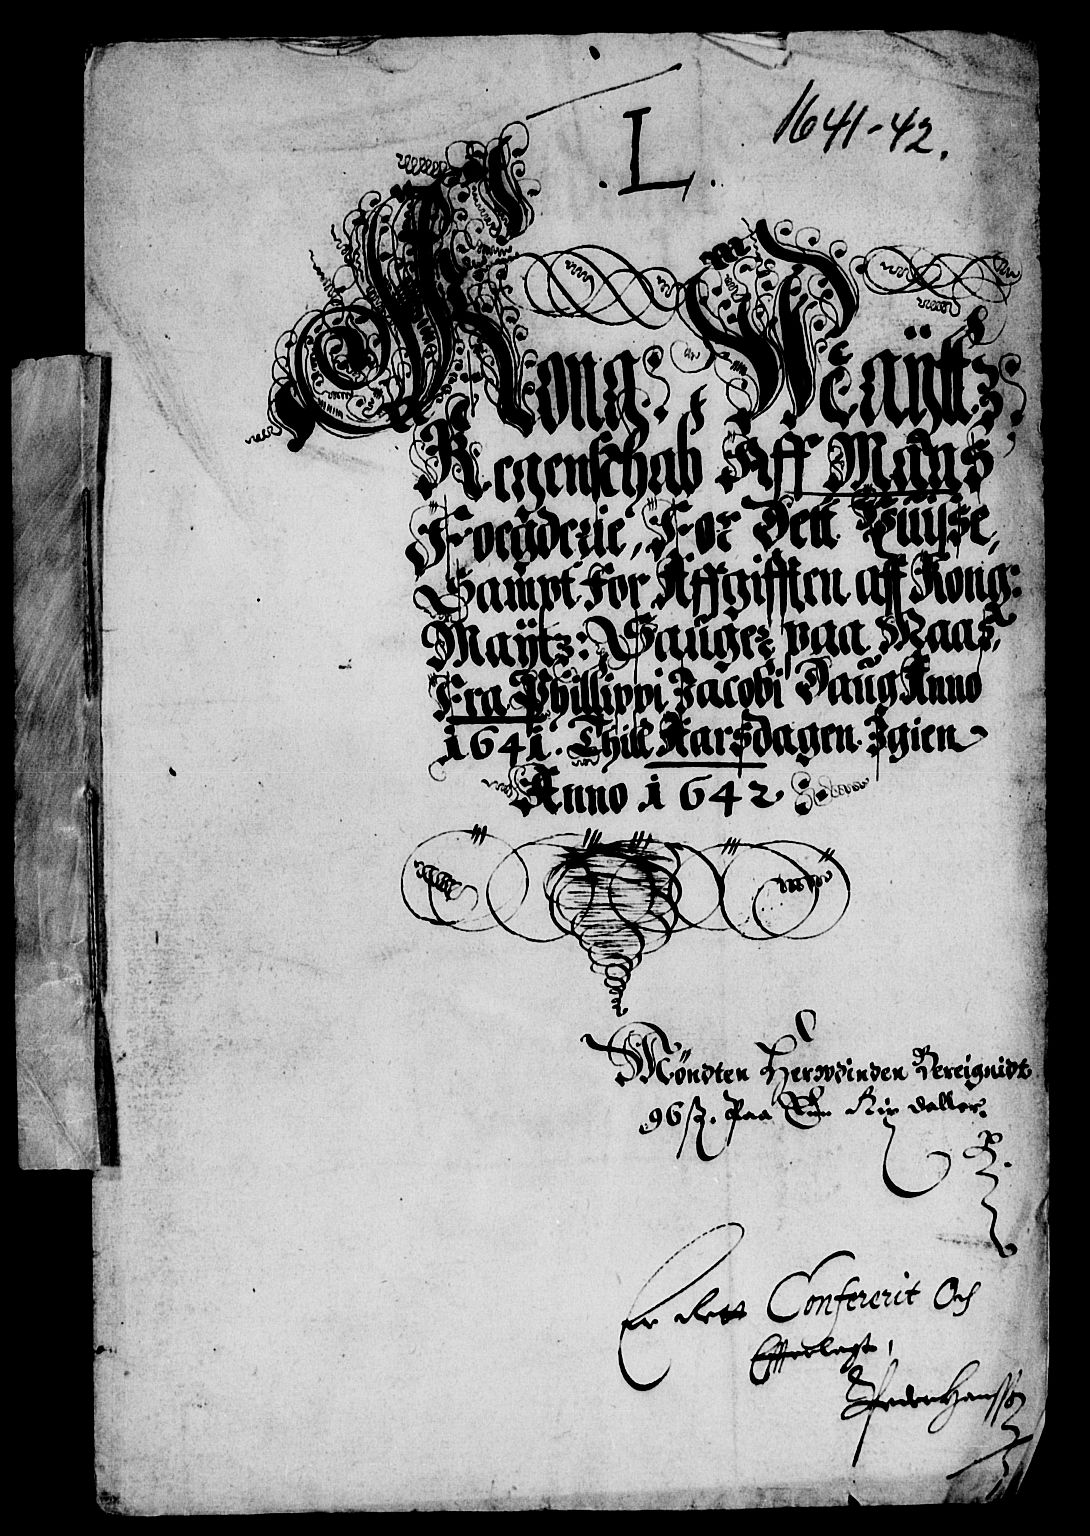 1641-42.
. L .
Kong: Maÿttz:
Regenschab Aff Moÿs
Foegderie, For Dett Visse,
Sampt For Affgifften aff Kong:
Maÿtz: Sauger paa Moss,
Fra Phillippi Jacobi Daug Anno
1641. Thill Aarsdagen Igien
Anno 1642
Mÿndten Herwdinden Bereignidt
96 ß. Paa Enn Rix daller.
Er dett Confererit Och
Offuerlegt,
Peder Hanssøn